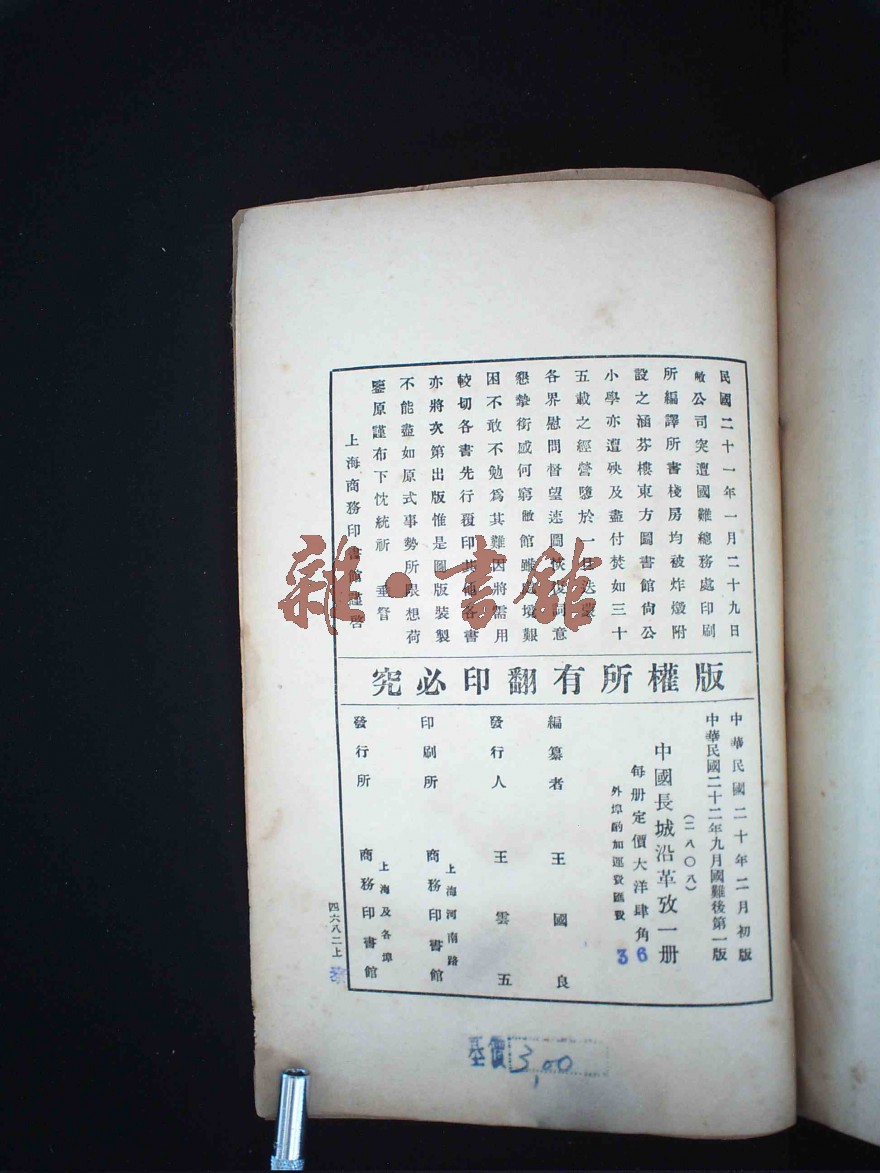 民國二十一年一月二十九日
敝公司突遭國難總務處印刷
所編譯所書棧房均被炸燬附
設之涵芬樓東方圖書館尙公
小學亦遭殃及盡付焚如三十
五載之經營隳於一旦迭蒙
各界慰問督望速圖恢復同意
懇摯銜感何窮敝館雖處境艱
困不敢不勉爲其難因將需用
較切各書先行覆印其他各書
亦將次第出版惟是圖版裝製
不能盡如原式事勢所限想荷
鑒原謹布下忱統祈 垂詧
上海商務印書館謹啓
版權所有翻印必究
中華民國二十年二月初版
中華民國二十二年九月國難後第一版
(二八〇八)
中國長城沿革攷一册
每册定價大洋肆角
6
外埠酌加運費匯費
3
編纂者 王國良
發行人 王雲五
印刷所 上海河南路 商務印書館
發行所 上海及各埠 商務印書館
四六八二上
基價 3,00
雜·書館